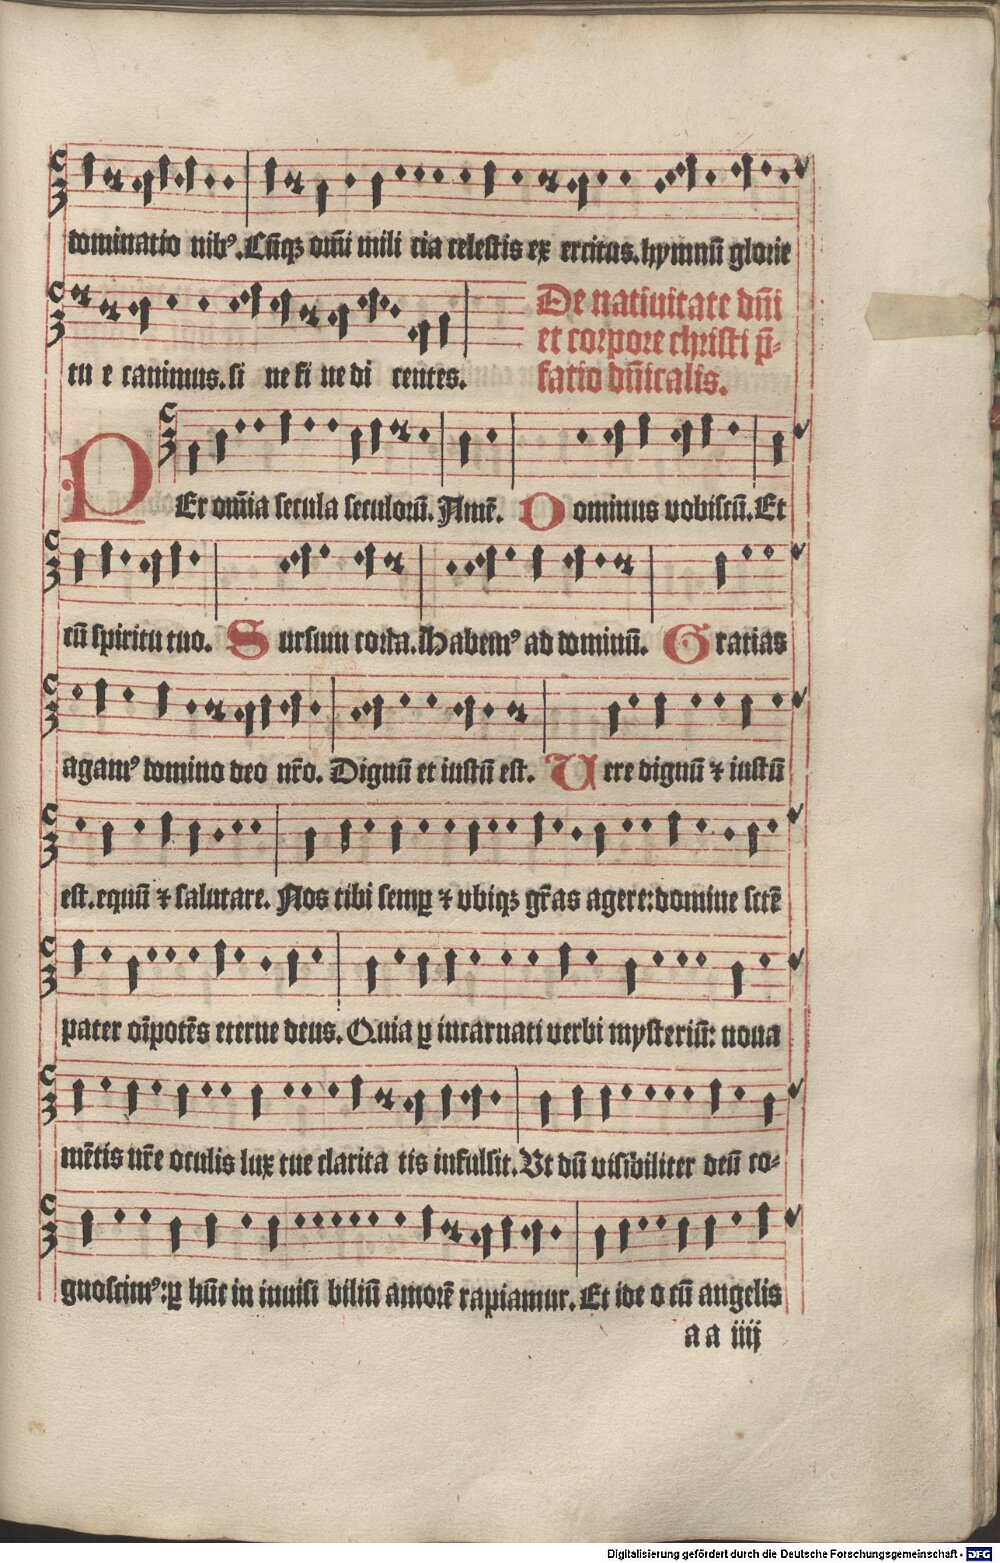 dominatio nibꝰ. Cūqꝫ om̄i mili cia celestis ex ercitus. hymnū glorie
tu e canimus. si ne fi ne di centes.
De natiuitate dn̄i
et corpore christi p̄-
fatio dn̄icalis.
PEr om̄ia secula seculorū. Amē. Dominus vobiscū. Et
cū spiritu tuo. Sursum corda. Habemꝰ ad dominū. Gratias
agamꝰ domino deo nr̄o. Dignū et iustū est. Uere dignū ⁊ iustū
est. equū ⁊ salutare. Nos tibi semꝑ ⁊ vbiqꝫ gr̄as agere: domine sctē
pater oīpotēs eterne deus. Quia ꝑ incarnati verbi mysteriū: noua
mētis nr̄e oculis lux tue clarita tis infulsit. Vt dū visibiliter deū co-
gnoscimꝰ: ꝑ hūc in inuisi biliū amorē rapiamur. Et ide o cū angelis
aa iiij
Digitalisierung gefördert durch die Deutsche Forschungsgemeinschaft - DFG